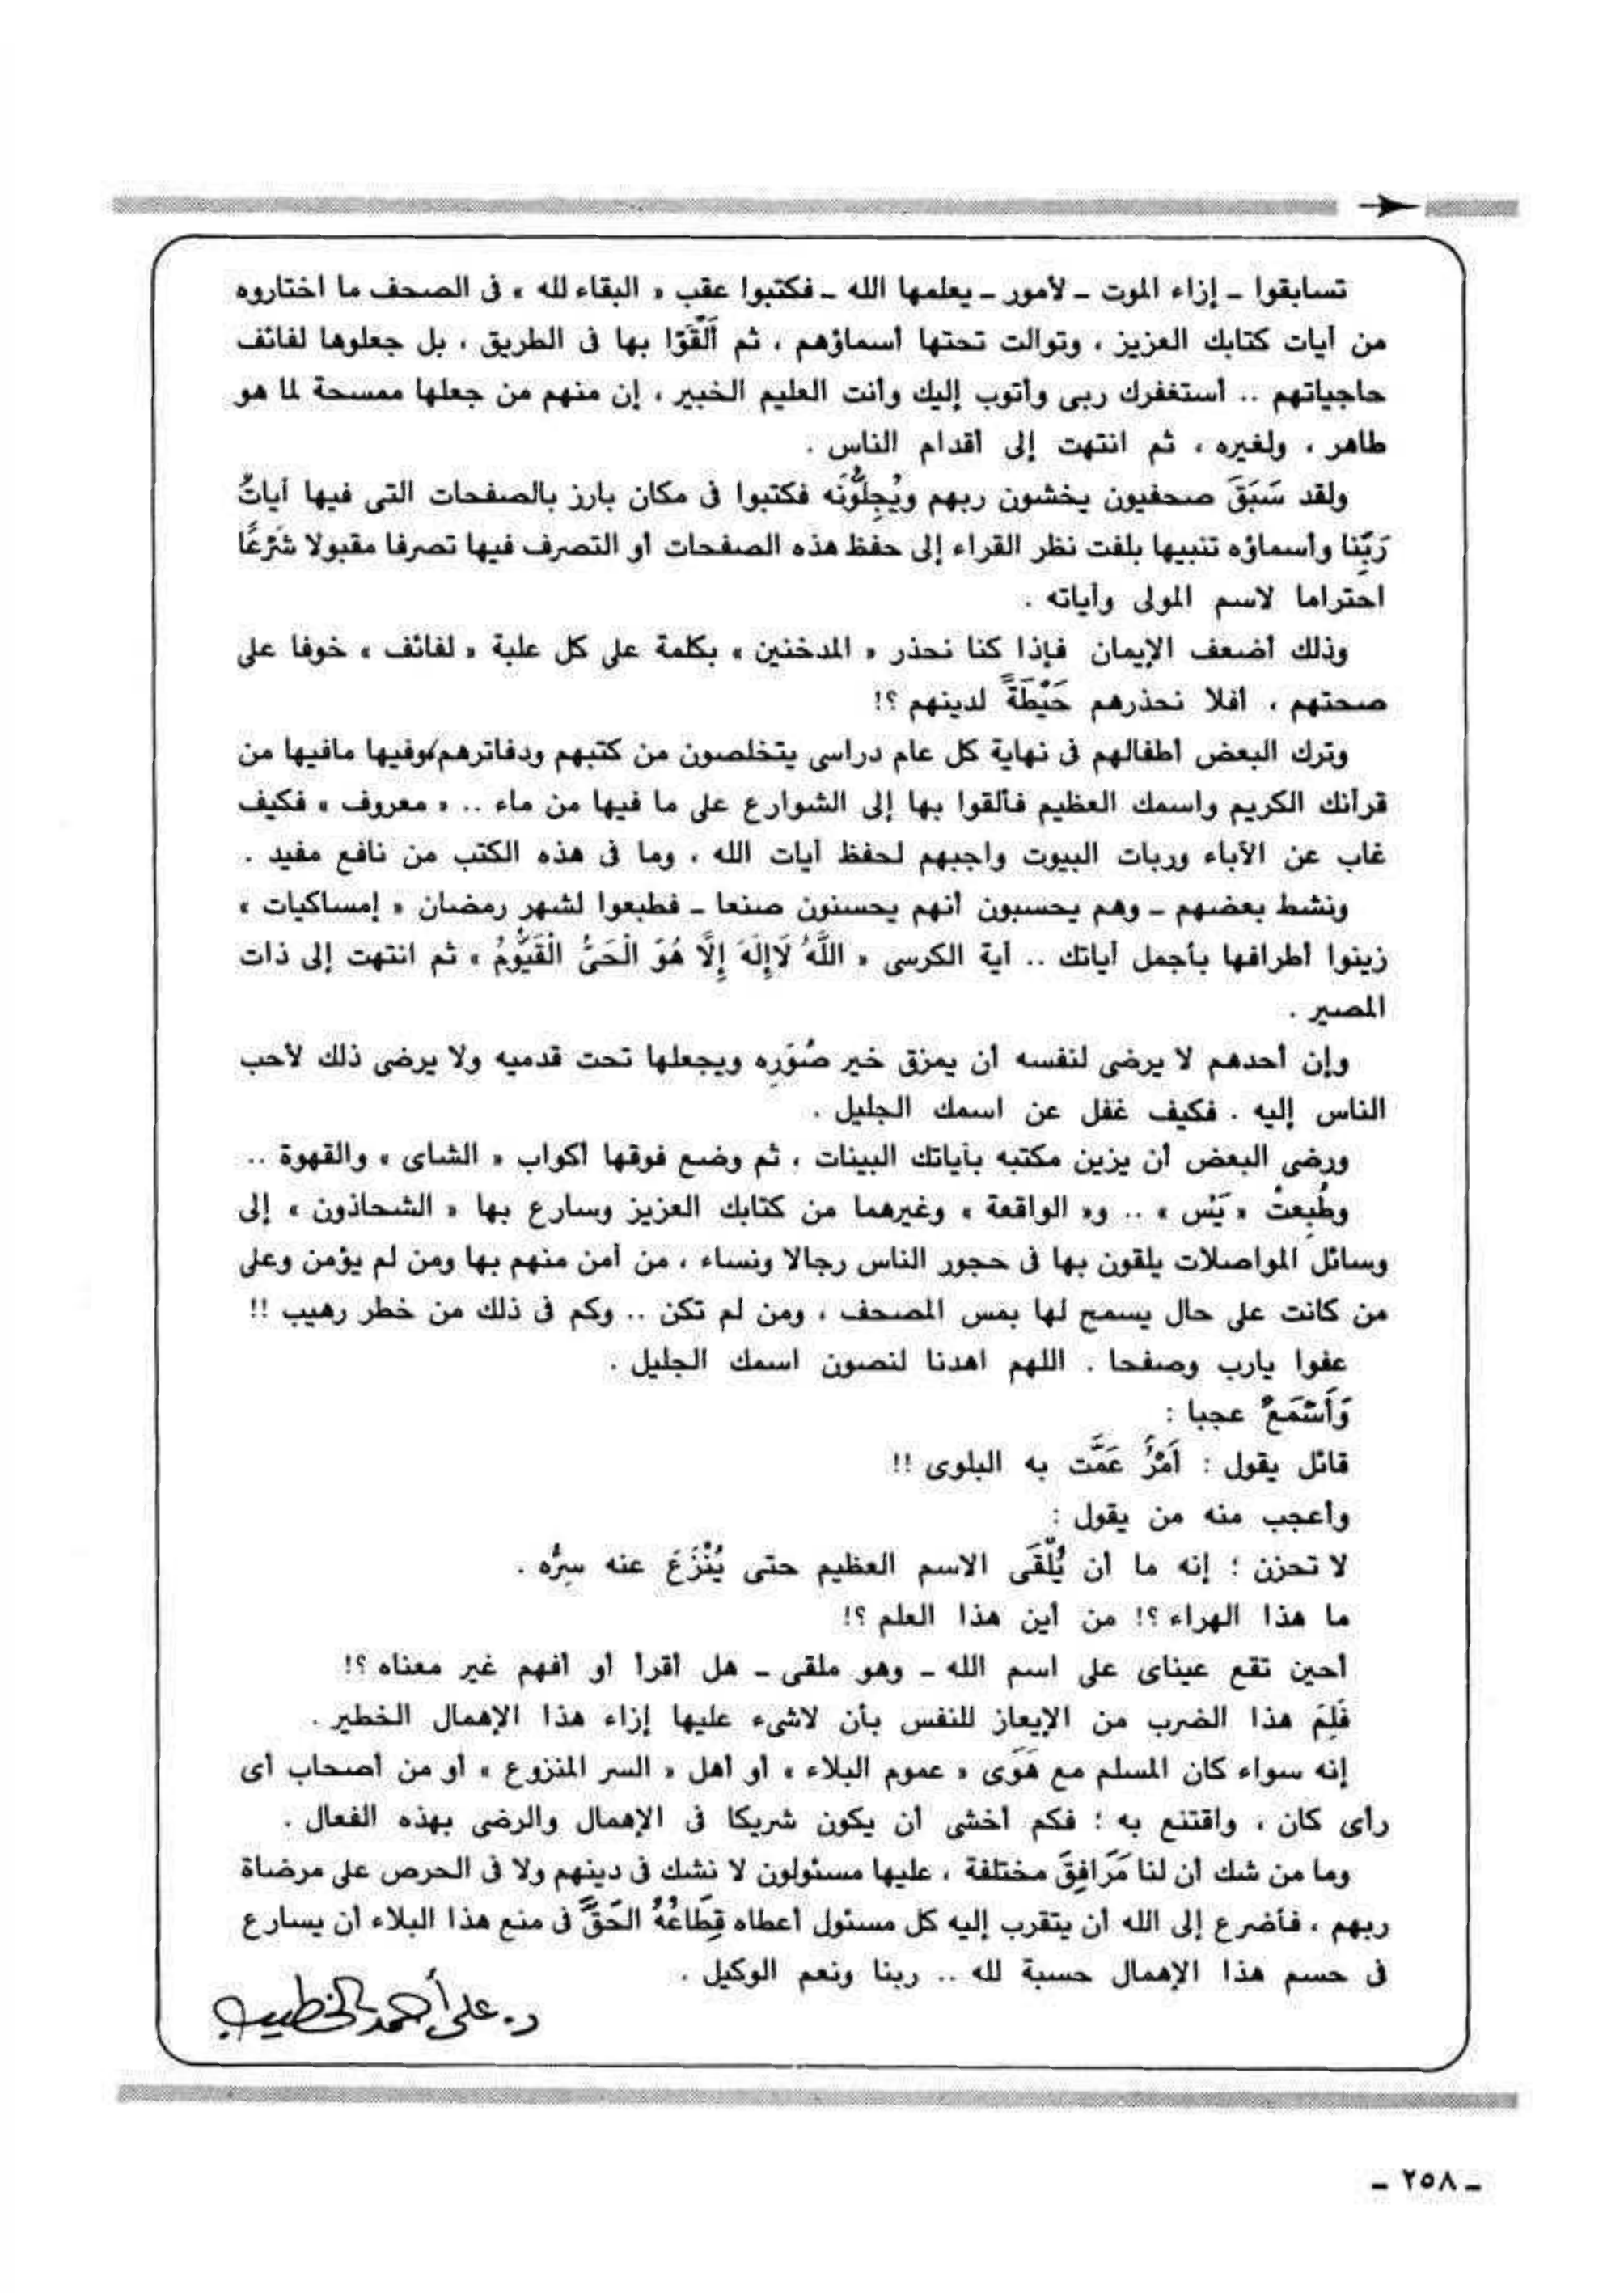 تسابقوا ـ إزاء الموت ـ لأمور ـ يعلمها الله ـ فكتبوا عقب « البقاء لله » فى الصحف ما اختاروه
من آيات كتابك العزيز ، وتوالت تحتها أسماؤهم ، ثم أَلْقَوْا بها فى الطريق ، بل جعلوها لفائف
حاجياتهم .. أستغفرك ربى وأتوب إليك وأنت العليم الخبير ، إن منهم من جعلها ممسحة لما هو
طاهر ، ولغيره ، ثم انتهت إلى أقدام الناس .
ولقد سَبَقَ صحفيون يخشون ربهم ويُجِلُّونَه فكتبوا فى مكان بارز بالصفحات التى فيها آياتُ
رَبِّنا وأسماؤه تنبيها بلفت نظر القراء إلى حفظ هذه الصفحات أو التصرف فيها تصرفا مقبولا شَرْعًا
احتراما لاسم المولى وآياته .
وذلك أضعف الإيمان فإذا كنا نحذر « المدخنين » بكلمة على كل علبة « لفائف » خوفا على
صحتهم ، أفلا نحذرهم حَيْطَةً لدينهم ؟!
وترك البعض أطفالهم فى نهاية كل عام دراسى يتخلصون من كتبهم ودفاترهم، وفيها مافيها من
قرآنك الكريم واسمك العظيم فألقوا بها إلى الشوارع على ما فيها من ماء .. « معروف » فكيف
غاب عن الآباء وربات البيوت واجبهم لحفظ آيات الله ، وما فى هذه الكتب من نافع مفيد .
ونشط بعضهم ـ وهم يحسبون أنهم يحسنون صنعا ـ فطبعوا لشهر رمضان « إمساكيات »
زينوا أطرافها بأجمل آياتك .. آية الكرسى « اللَّهُ لَاإِلَهَ إِلَّا هُوَ الْحَىُّ الْقَيُّومُ » ثم انتهت إلى ذات
المصير .
وإن أحدهم لا يرضى لنفسه أن يمزق خير صُوَرِه ويجعلها تحت قدميه ولا يرضى ذلك لأحب
الناس إليه . فكيف غفل عن اسمك الجليل .
ورضى البعض أن يزين مكتبه بآياتك البينات ، ثم وضع فوقها أكواب « الشاى » والقهوة ..
وطُبِعتْ « يَس » .. و« الواقعة » وغيرهما من كتابك العزيز وسارع بها « الشحاذون » إلى
وسائل المواصلات يلقون بها فى حجور الناس رجالا ونساء ، من آمن منهم بها ومن لم يؤمن وعلى
من كانت على حال يسمح لها بمس المصحف ، ومن لم تكن .. وكم فى ذلك من خطر رهيب !!
عفوا يارب وصفحا . اللهم اهدنا لنصون اسمك الجليل .
وَأَسْمَعُ عجبا :
قائل يقول : أَمْرٌ عَمَّت به البلوى !!
وأعجب منه من يقول :
لا تحزن ؛ إنه ما أن يُلْقَى الاسم العظيم حتى يُنْزَعَ عنه سِرُّه .
ما هذا الهراء ؟! من أين هذا العلم ؟!
أحين تقع عيناى على اسم الله ـ وهو ملقى ـ هل أقرأ أو أفهم غير معناه ؟!
فَلِمَ هذا الضرب من الإيعاز للنفس بأن لاشىء عليها إزاء هذا الإهمال الخطير .
إنه سواء كان المسلم مع هَوَى « عموم البلاء » أو أهل « السر المنزوع » أو من أصحاب أى
رأى كان ، واقتنع به ؛ فكم أخشى أن يكون شريكا فى الإهمال والرضى بهذه الفعال .
وما من شك أن لنا مَرَافِقَ مختلفة ، عليها مسئولون لا نشك فى دينهم ولا فى الحرص على مرضاة
ربهم ، فأضرع إلى الله أن يتقرب إليه كل مسئول أعطاه قِطَاعُهُ الحَقَّ فى منع هذا البلاء أن يسارع
فى حسم هذا الإهمال حسبة لله .. ربنا ونعم الوكيل .
د. على أحمد الخطيب
ـ ٢٥٨ ـ